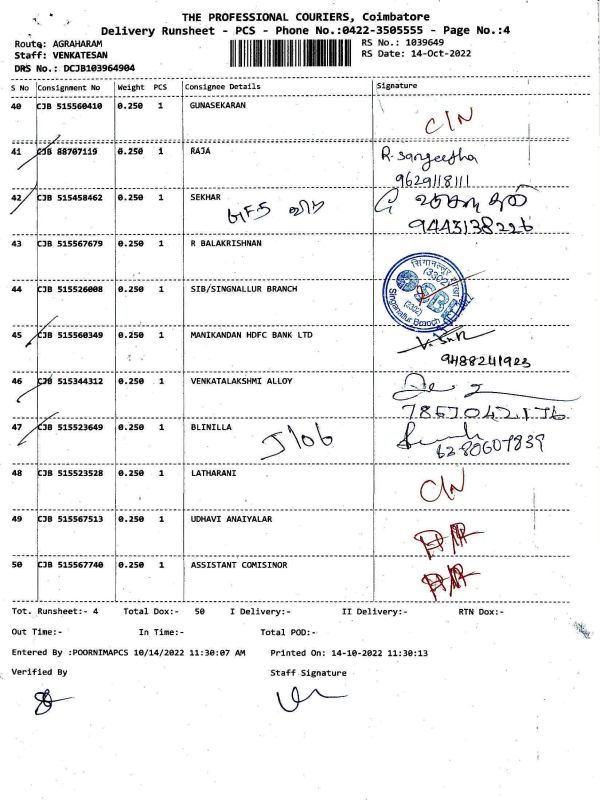 THE PROFESSIONAL COURIERS, Coimbatore
Delivery Runsheet - PCS - Phone No.:0422-3505555 - Page No.:4
Route: AGRAHARAM
RS No.: 1039649
Staff: VENKATESAN
RS Date: 14-Oct-2022
DRS No.: DCJB103964904
S No Consignment No Weight PCS Consignee Details Signature
40 CJB 515560410 0.250 1 GUNASEKARAN C/N
41 CJB 88707119 0.250 1 RAJA R. Sangeetha
9629118111
42 CJB 515458462 0.250 1 SEKHAR
9443138226
43 CJB 515567679 0.250 1 R BALAKRISHNAN
44 CJB 515526008 0.250 1 SIB/SINGNALLUR BRANCH
सिंगानल्लूर
SIB
Singanallur Branch
45 CJB 515560349 0.250 1 MANIKANDAN HDFC BANK LTD
9488241923
46 CJB 515344312 0.250 1 VENKATALAKSHMI ALLOY
47 CJB 515523649 0.250 1 BLINILLA
6280607839
48 CJB 515523528 0.250 1 LATHARANI C/N
49 CJB 515567513 0.250 1 UDHAVI ANAIYALAR
50 CJB 515567740 0.250 1 ASSISTANT COMISINOR
Tot. Runsheet:- 4 Total Dox:- 50 I Delivery:- II Delivery:- RTN Dox:-
Out Time:- In Time:- Total POD:-
Entered By :POORNIMAPCS 10/14/2022 11:30:07 AM Printed On: 14-10-2022 11:30:13
Verified By Staff Signature